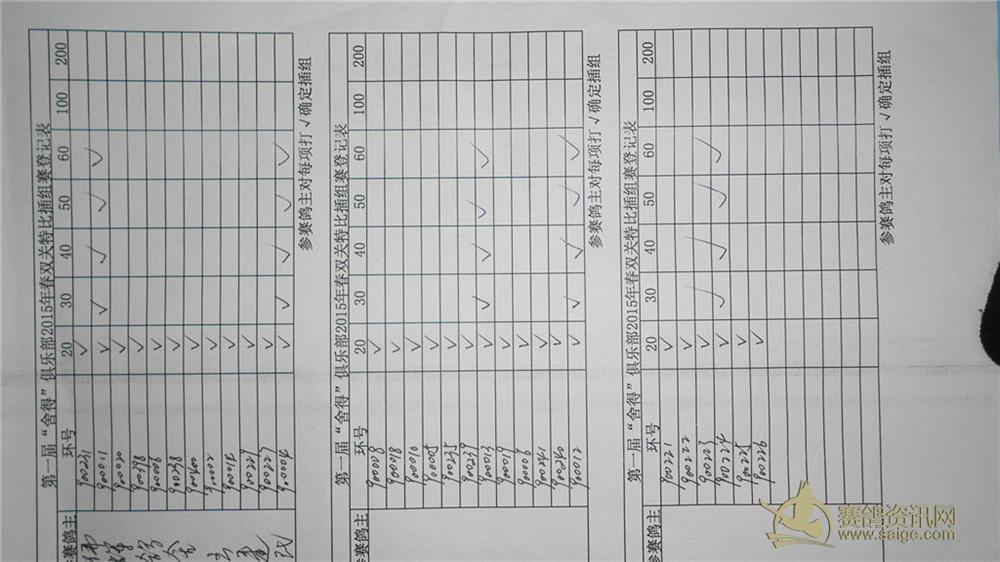 第一届“舍得”俱乐部2015年春双关特比插组赛登记表
参赛鸽主 环号 20 30 40 50 60 100 200
900231 √
900011 √ √ √ √ √
900020 √
900298 √
900006 √
900238 √
900400 √
900002 √
900014 √
900229 √
900227 √
900004 √ √ √ √ √
参赛鸽主对每项打√确定插组
第一届“舍得”俱乐部2015年春双关特比插组赛登记表
参赛鸽主 环号 20 30 40 50 60 100 200
900008 √
900018 √
900010 √
900005 √
900235 √
900239 √
900013 √ √ √ √ √
900019 √
900006 √
900241 √
900240 √
900012 √ √ √ √ √
参赛鸽主对每项打√确定插组
第一届“舍得”俱乐部2015年春双关特比插组赛登记表
参赛鸽主 环号 20 30 40 50 60 100 200
900221 √
900222 √
900223 √
900224 √ √ √ √ √
900225 √
900226 √
参赛鸽主对每项打√确定插组
赛鸽资讯网
www.saige.com